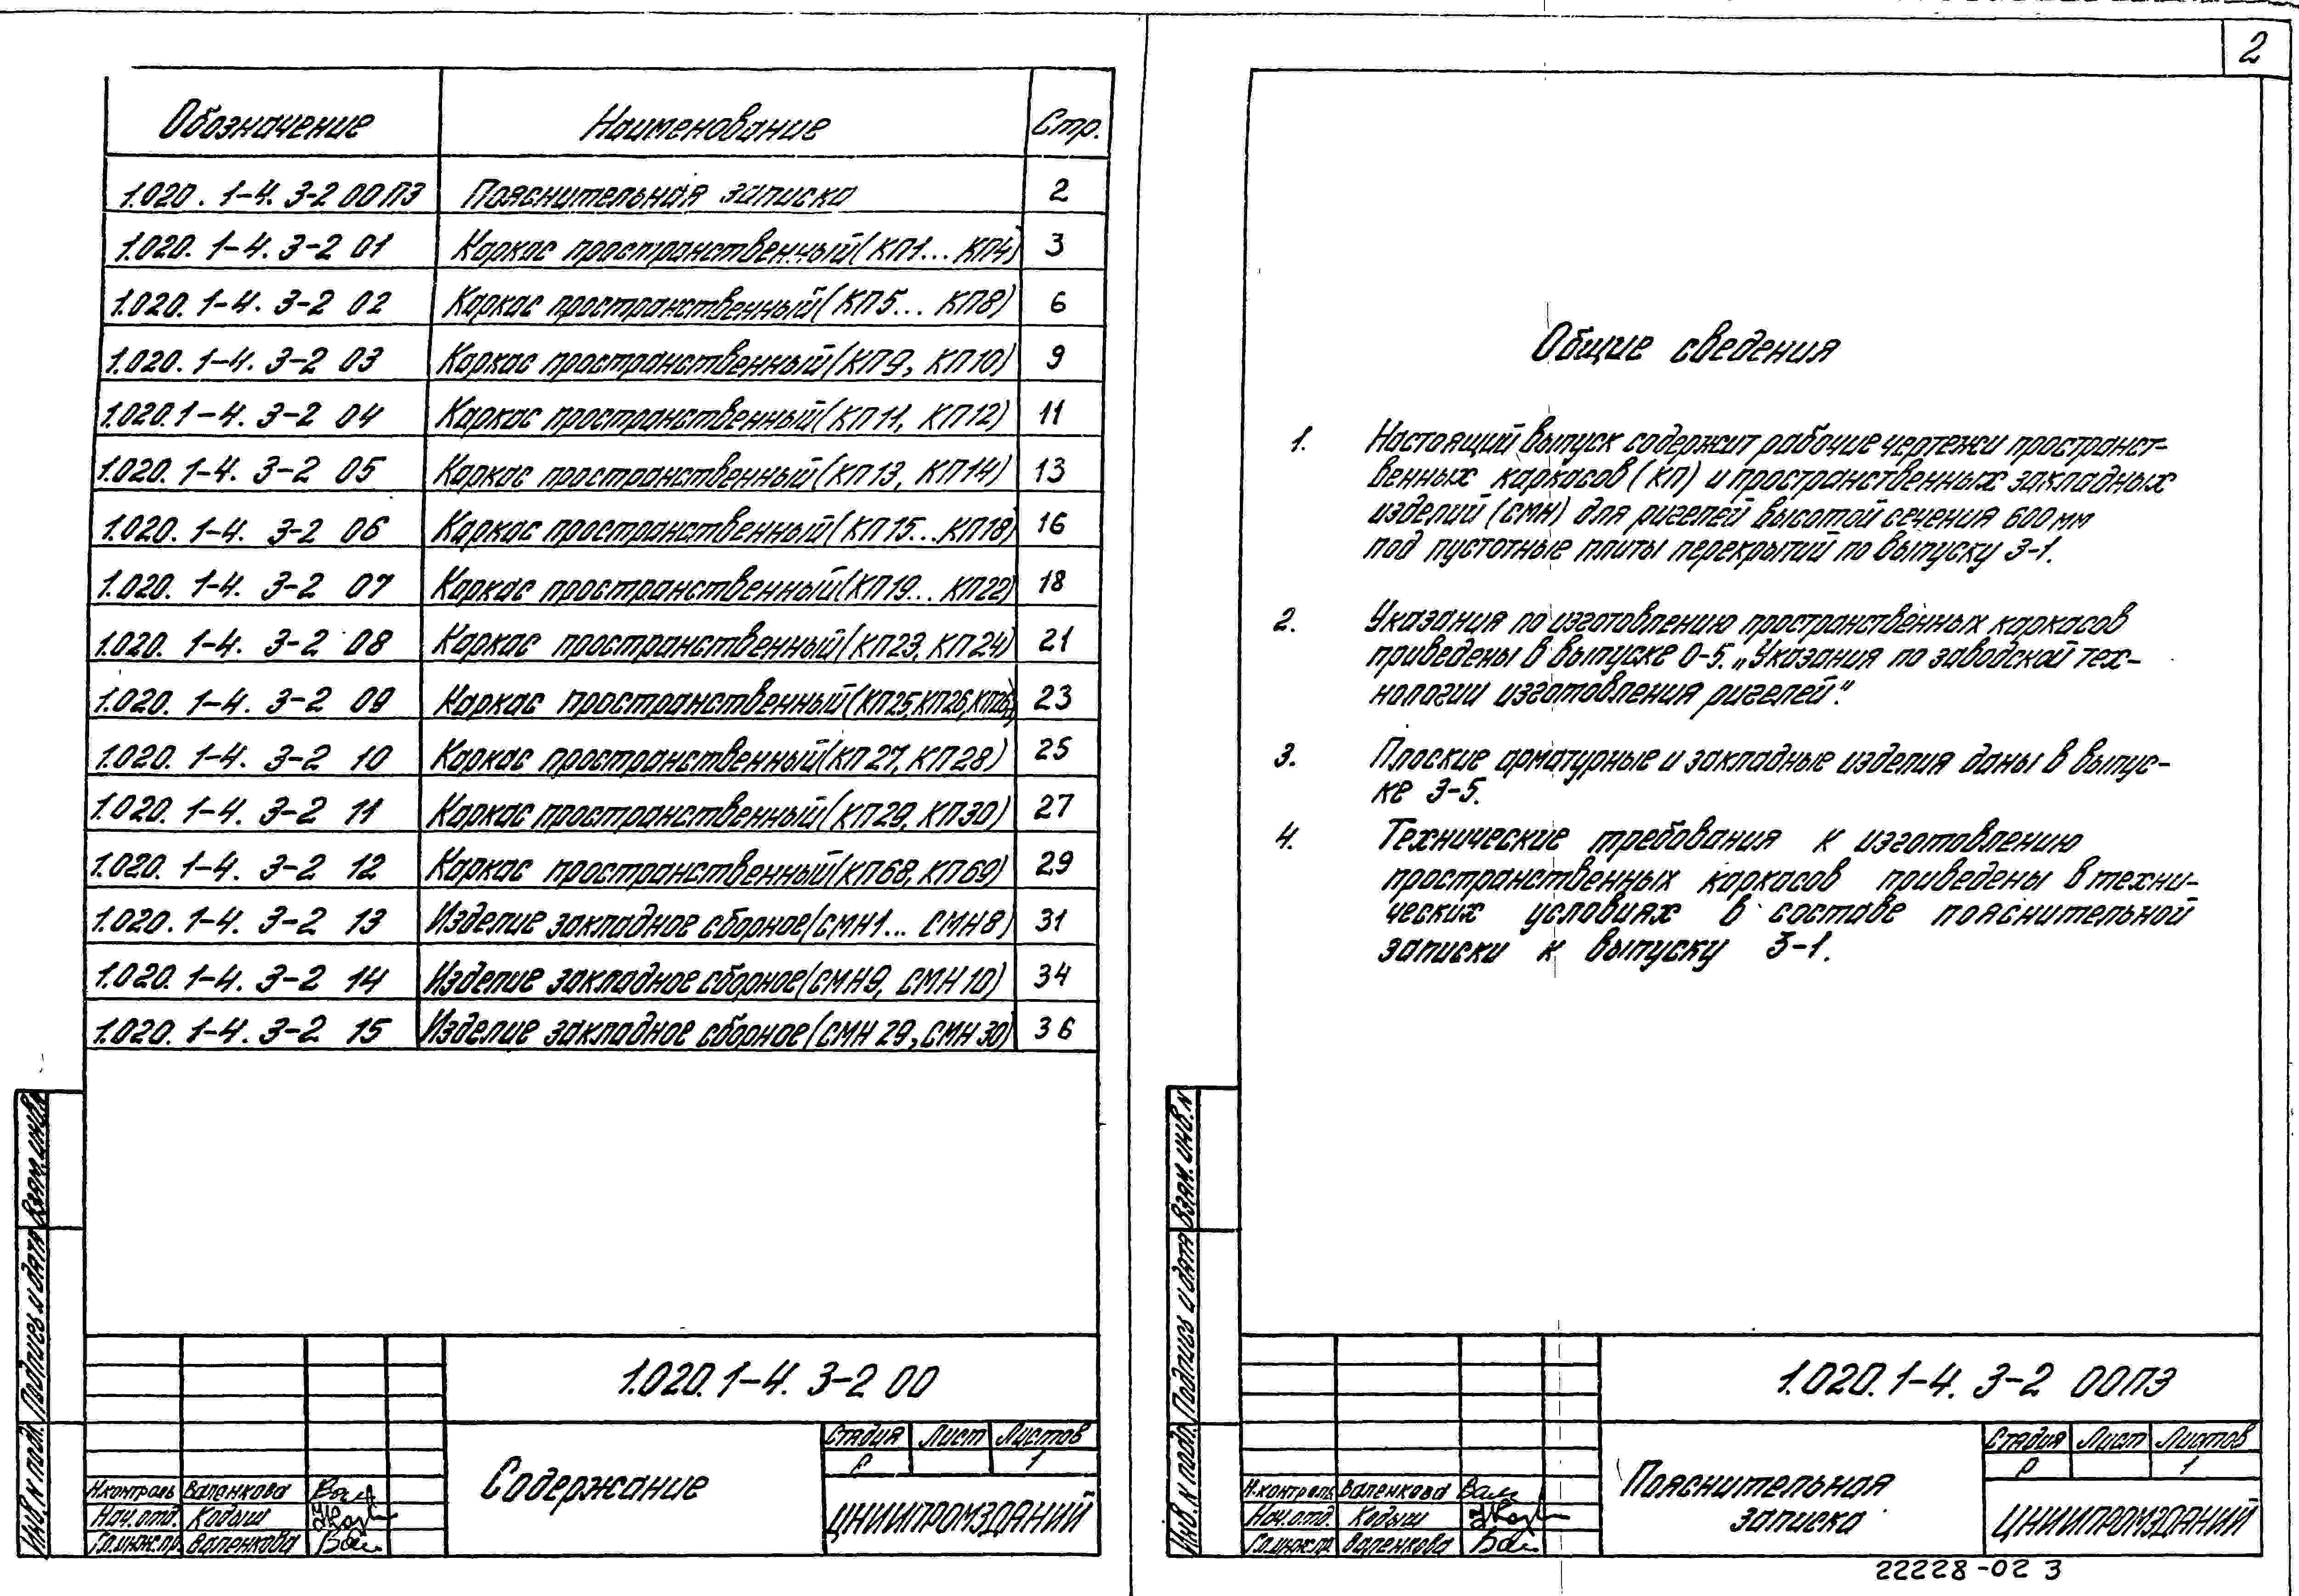 Обозначение Наименование Стр.
1.020.1-4. 3-2 00ПЗ Пояснительная записка 2
1.020.1-4. 3-2 01 Каркас пространственный (КП1... КП4) 3
1.020.1-4. 3-2 02 Каркас пространственный (КП5... КП8) 6
1.020.1-4. 3-2 03 Каркас пространственный (КП9, КП10) 9
1.020.1-4. 3-2 04 Каркас пространственный (КП11, КП12) 11
1.020.1-4. 3-2 05 Каркас пространственный (КП13, КП14) 13
1.020.1-4. 3-2 06 Каркас пространственный (КП15...КП18) 16
1.020.1-4. 3-2 07 Каркас пространственный (КП19... КП22) 18
1.020.1-4. 3-2 08 Каркас пространственный (КП23, КП24) 21
1.020.1-4. 3-2 09 Каркас пространственный (КП25, КП26, 23
1.020.1-4. 3-2 10 Каркас пространственный (КП27, КП28) 25
1.020.1-4. 3-2 11 Каркас пространственный (КП29, КП30) 27
1.020.1-4. 3-2 12 Каркас пространственный (КП68, КП69) 29
1.020.1-4. 3-2 13 Изделие закладное сборное (СМН1... СМН8) 31
1.020.1-4. 3-2 14 Изделие закладное сборное (СМН9, СМН10) 34
1.020.1-4. 3-2 15 Изделие закладное сборное (СМН29, СМН30) 36
Взам. инв. N
Подпись и дата
Инв. N подл.
1.020.1-4. 3-2 00
Содержание
Стадия Лист Листов
Р 1
ЦНИИПРОМЗДАНИЙ
Н.контроль Валенкова
Нач.отд. Кодыш
Гл.инж.пр. Валенкова
2
Общие сведения
1. Настоящий выпуск содержит рабочие чертежи пространст-
венных каркасов (КП) и пространственных закладных
изделий (СМН) для ригелей высотой сечения 600 мм
под пустотные плиты перекрытий по выпуску 3-1.
2. Указания по изготовлению пространственных каркасов
приведены в выпуске 0-5. „Указания по заводской тех-
нологии изготовления ригелей".
3. Плоские арматурные и закладные изделия даны в выпус-
ке 3-5.
4. Технические требования к изготовлению
пространственных каркасов приведены в техни-
ческих условиях в составе пояснительной
записки к выпуску 3-1.
Взам. инв. N
Подпись и дата
Инв. N подл.
1.020.1-4. 3-2 00ПЗ
Пояснительная
записка
Стадия Лист Листов
Р 1
ЦНИИПРОМЗДАНИЙ
Н.контроль Валенкова
Нач.отд. Кодыш
Гл.инж.пр. Валенкова
22228-02 3